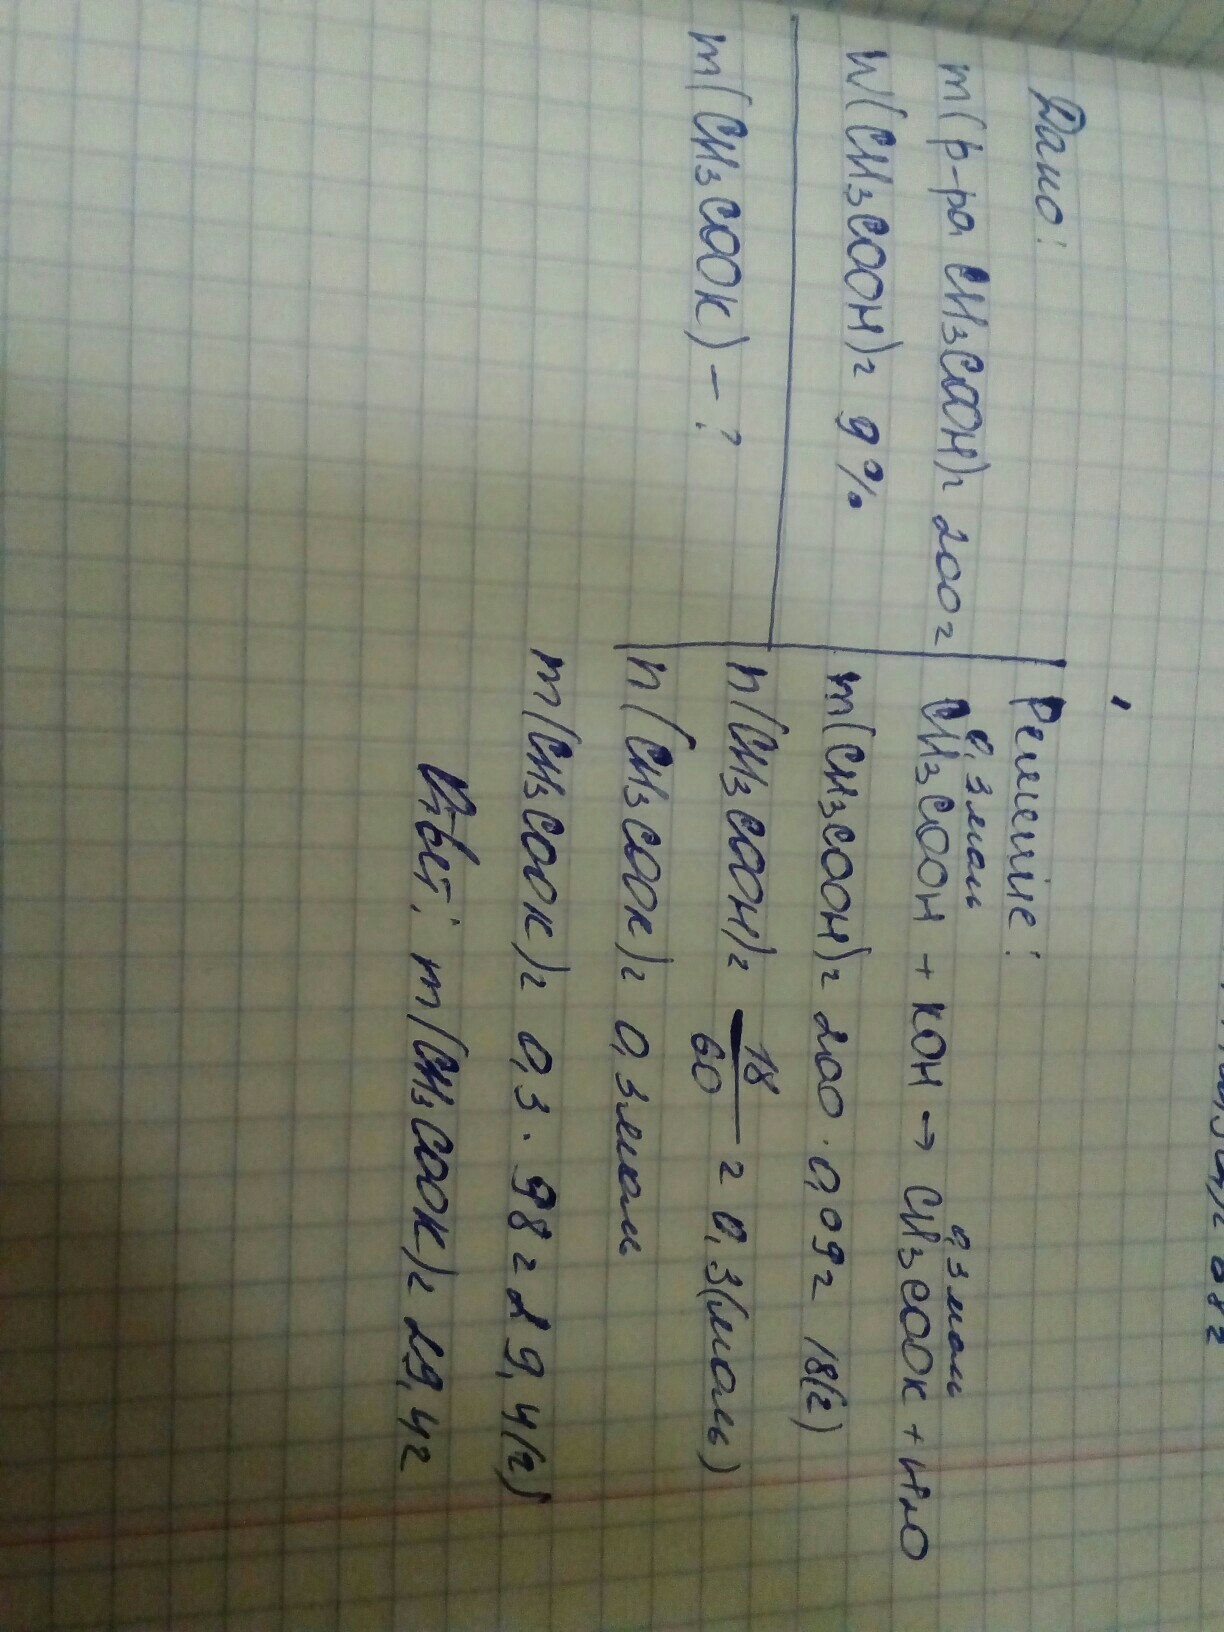 Дано:
m(р-ра CH3COOH)= 200г
W(CH3COOH)= 9%
m(CH3COOK) - ?
Решение:
0,3моль 0,3моль
CH3COOH + KOH → CH3COOK + H2O
m(CH3COOH)= 200 · 0,09= 18(г)
n(CH3COOH)= 18/60 = 0,3(моль)
n(CH3COOK)= 0,3моль
m(CH3COOK)= 0,3 · 98= 29,4(г)
Ответ: m(CH3COOK)= 29,4г